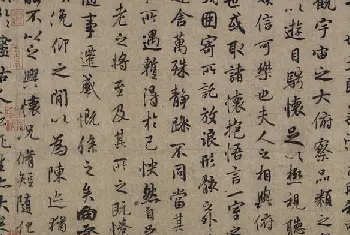 觀宇宙之大俯察品類之
以遊目騁懷足以極視聽
娛信可樂也夫人之相與俯
世或取諸懷抱悟言一室之
因寄所託放浪形骸之外
舍萬殊靜躁不同當其
所遇暫得於己快然自
老之將至及其所之既惓
隨事遷感慨係之矣向
俛仰之間以為陳迹猶
不以之興懷況脩短隨化